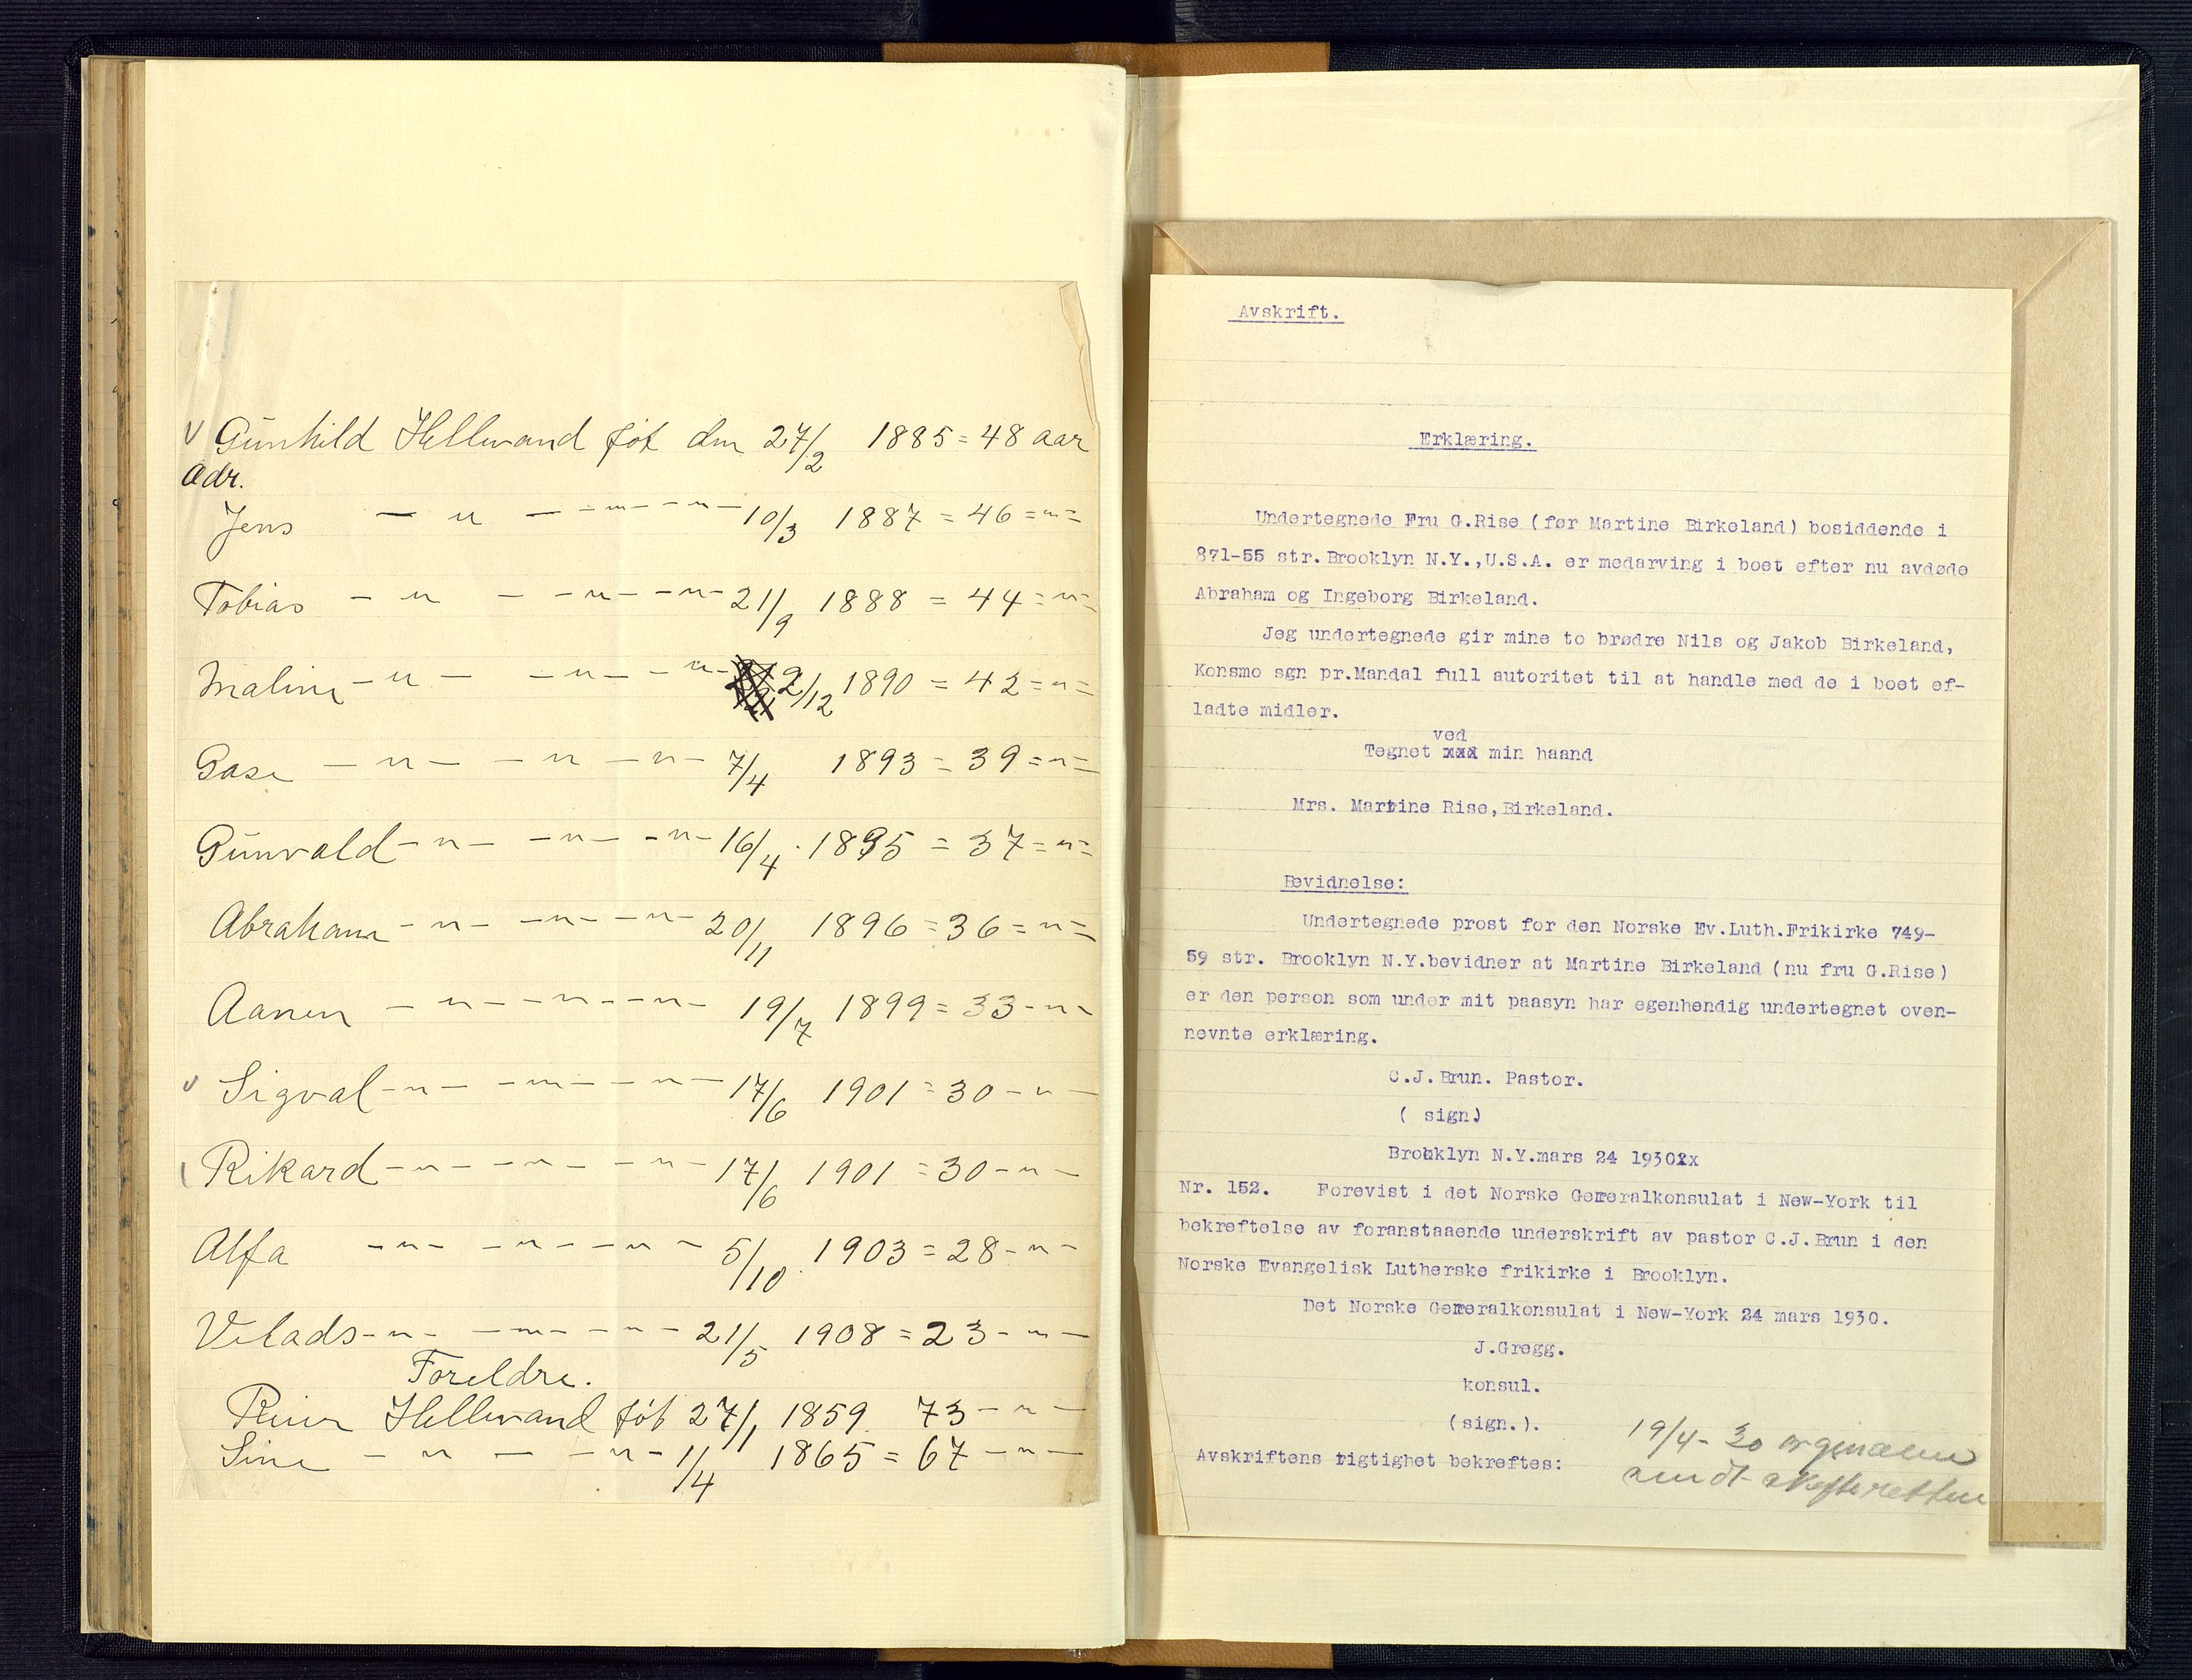 v Gunhild Hellevand føt den 27/2 1885 = 48 aar
Adr.
Jens — u — - - m - - n - 10/3 1887 = 46 = n =
Tobias - u - - n - - n - 21/9 1888 = 44 = n =
Maline - u - - n - - n - 2/12 1890 = 42 = n =
Gase - n - - n - - n - 7/4 1893 = 39 = n =
Gunvald - n - - n - - n - 16/4 1895 = 37 = n =
Abraham - n - - n - - n - 20/11 1896 = 36 = n =
Aanen - n - - n - - n - 19/7 1899 = 33 - n -
v Sigval - n - - m - - n - 17/6 1901 = 30 - n -
Rikard - n - - n - - n - 17/6 1901 = 30 - n -
Alfa - n - - n - - n - 5/10 1903 = 28 - n -
Velads - n - - m - - n - 21/5 1908 = 23 - n -
Foreldre.
Reier Hellevand føt 27/1 1859 73 - n -
Sine - n - - n - 1/4 1865 = 67 - n -
Avskrift.
Erklæring.
Undertegnede Fru G.Rise (før Martine Birkeland) bosiddende i
871-55 str. Brooklyn N.Y.,U.S.A. er medarving i boet efter nu avdøde
Abraham og Ingeborg Birkeland.
Jeg undertegnede gir mine to brødre Nils og Jakob Birkeland,
Konsmo sgn pr.Mandal full autoritet til at handle med de i boet ef-
ladte midler.
ved
Tegnet xxx min haand
Mrs. Martine Rise, Birkeland.
Bevidnelse:
Undertegnede prost for den Norske Ev.Luth.Frikirke 749-
59 str. Brooklyn N.Y.bevidner at Martine Birkeland (nu fru G.Rise)
er den person som under mit paasyn har egenhendig undertegnet oven-
nevnte erklæring.
C.J.Brun. Pastor.
( sign)
Brooklyn N.Y.mars 24 1930
Nr. 152. Forevist i det Norske Generalkonsulat i New-York til
bekreftelse av foranstaaende underskrift av pastor C.J.Brun i den
Norske Evangelisk Lutherske frikirke i Brooklyn.
Det Norske Generalkonsulat i New-York 24 mars 1930.
J.Gregg.
konsul.
(sign.).
Avskriftens rigtighet bekreftes:
19/4-30 orginalen
sendt skifteretten